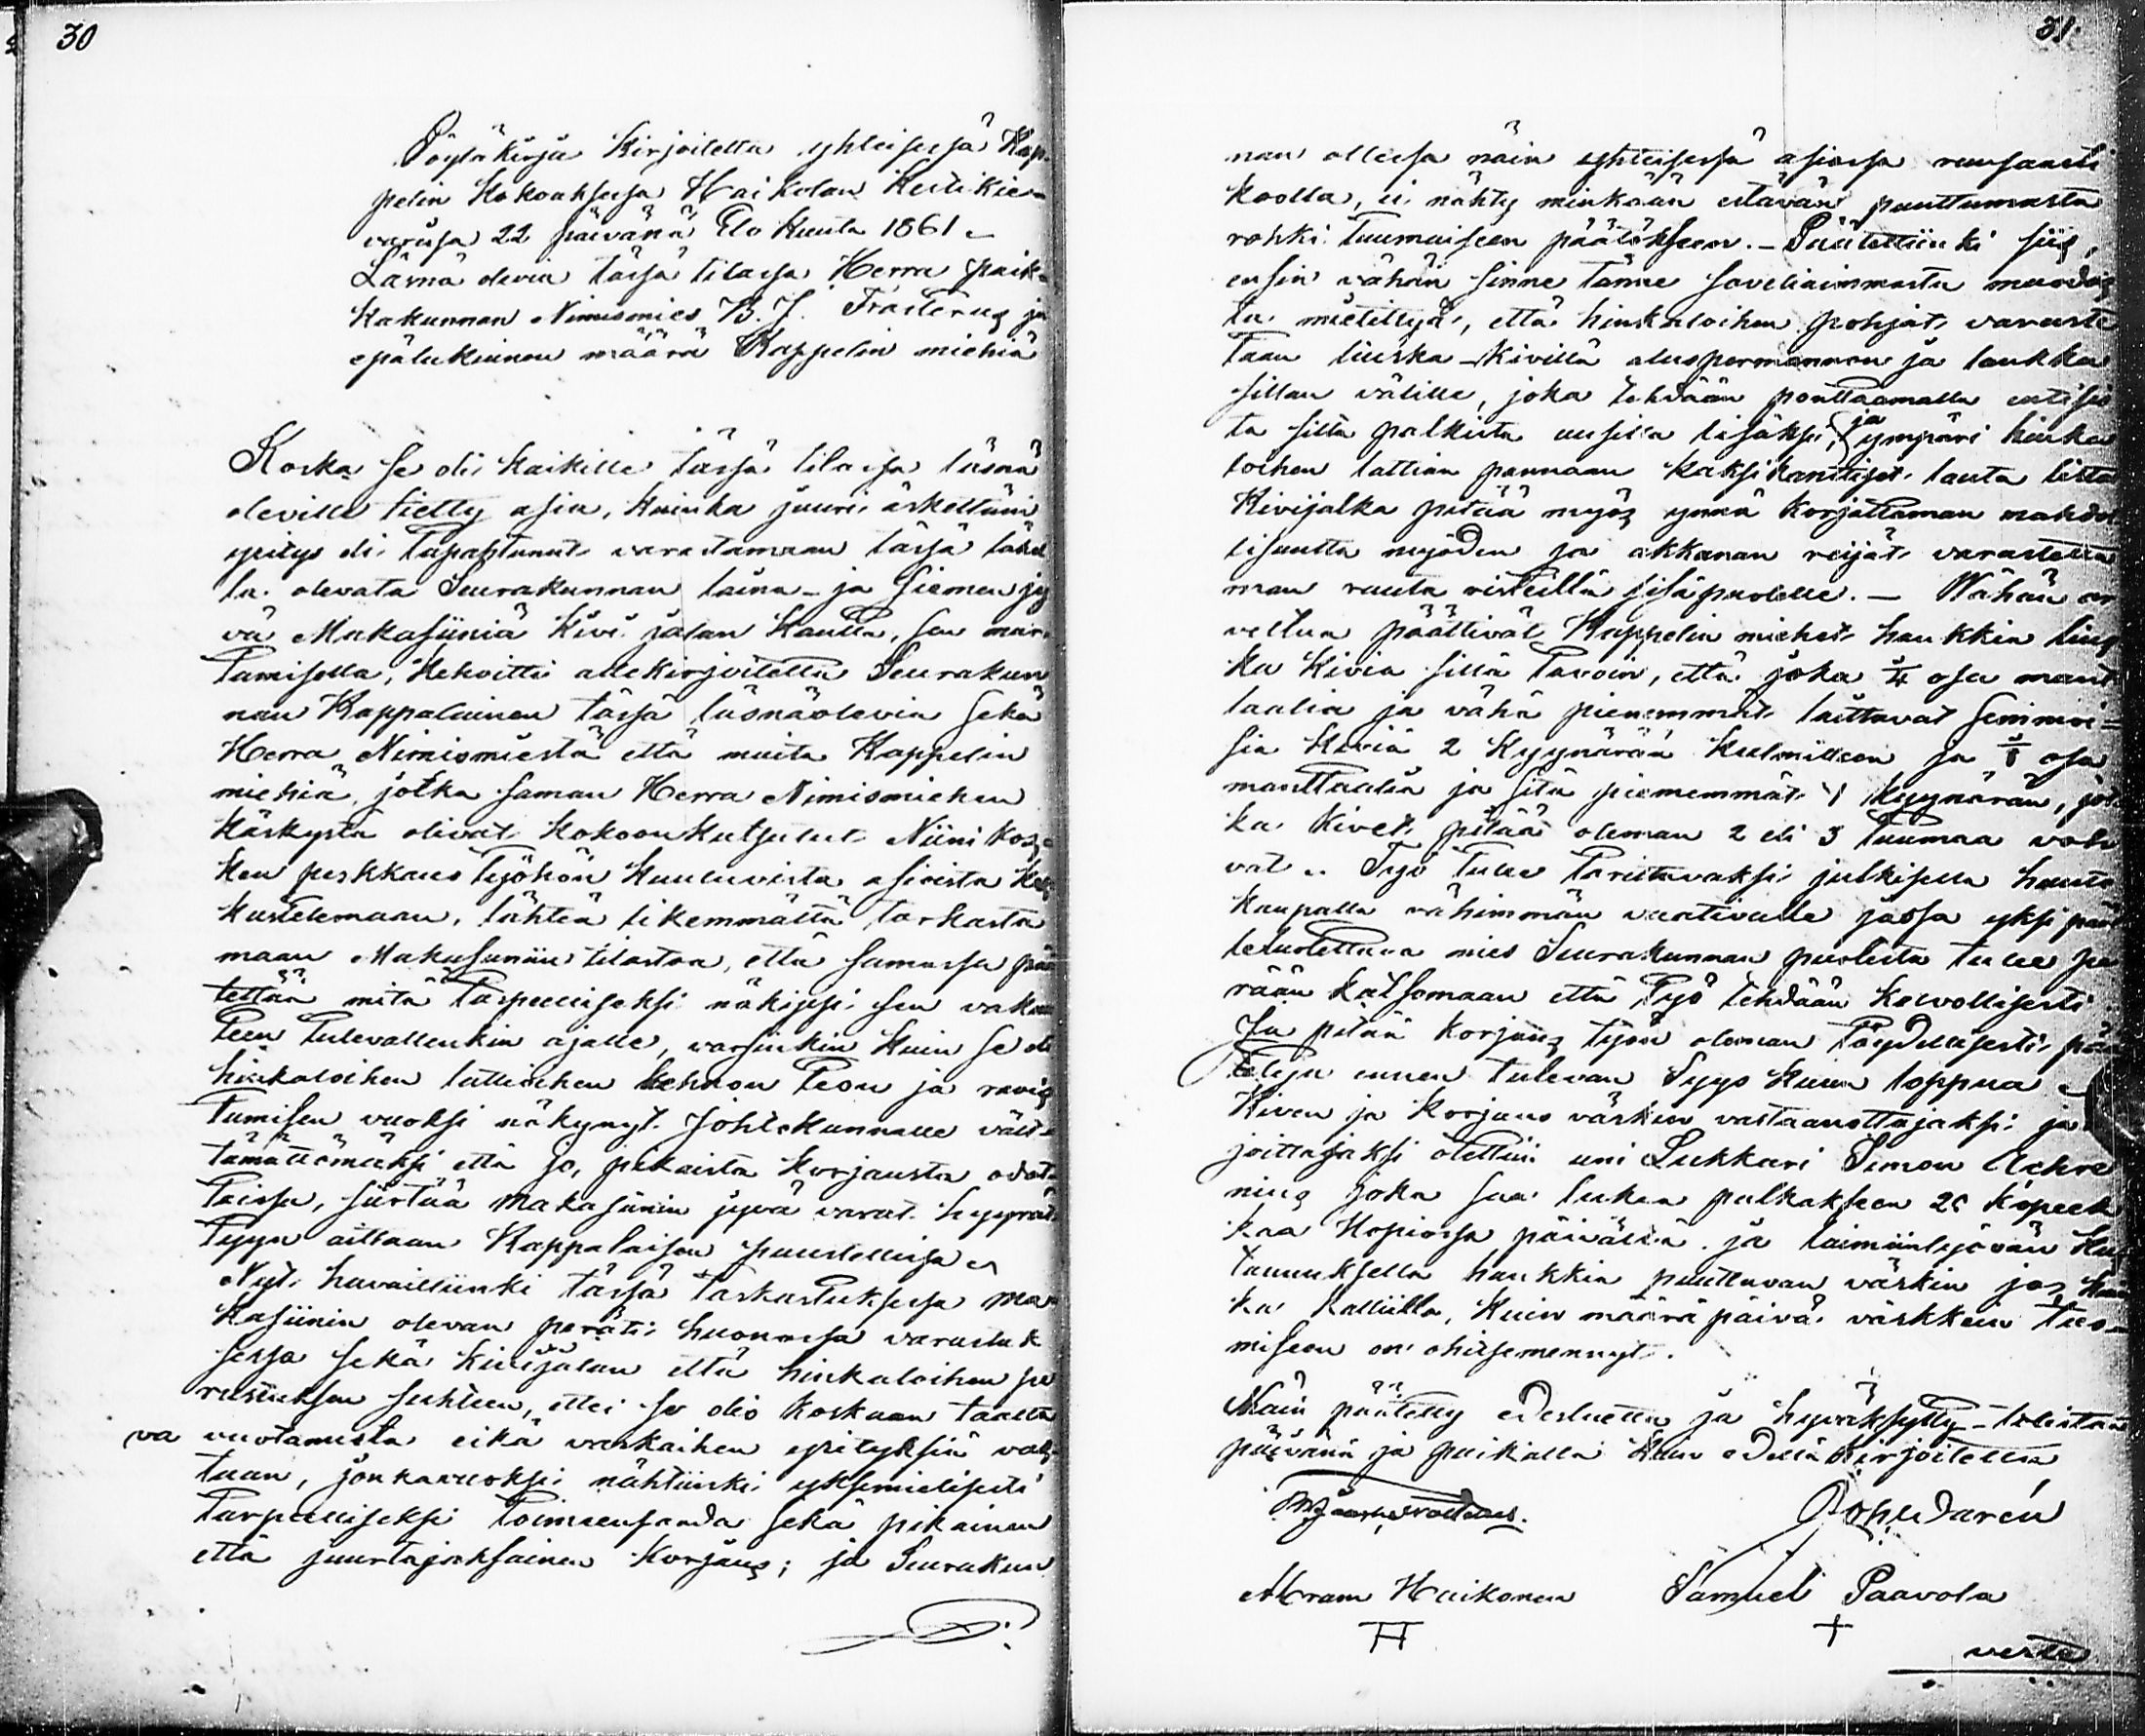 30
Pöytäkirja kirjoitettu yhteisessä Kap-
pelin kokouksessa Haikolan kestikie-
varissa 22 päivänä Elo kuuta 1861.
Läsnä olevia tässä tilassa Herra paik-
kakunnan Nimismies B. J. Frosterus ja
epälukuinen määrä Kappelin miehiä
Koska se oli kaikille tässä tilassa läsnä
oleville tietty asia, kuinka juuri äskettäin
yritys oli tapahtunut varastamaan tässä lähel
lä olevata Seurakunnan laina- ja siemen jy
vä Makasiiniä kivi jalan kautta, sen mur-
tamisella, kehoitti allekirjoitettu Seurakun
nan Kappalainen tässä läsnäolevia sekä
Herra Nimismiestä että muita Kappelin
miehiä, jotka saman Herra Nimismiehen
käskystä olivat kokoon kutsutut Niini kos-
ken perkkaus työhön kuuluvista asioista kes
kustelemaan, lähteä likemmältä tarkasta
maan Makasiinin tilastoa, että samassa pää
tettää mitä tarpeelliseksi näkisi sen vakuu
teen tulevallenkin ajalle, varsinkin kuin se oli
hinkaloihen lattioihen hehnon teon ja ravis
tumisen vuoksi näkynyt Johtokunnalle vält-
tämättömäksi että jo, pikaista korjausta odot-
taissa, siirtää makasiinin jyvä varat hyyrät
tyyn aittaan Kappalaisen puustellissa.
Nyt havaittiinki tässä tarkastuksessa ma-
kasiinin olevan peräti huonossa varustuk
sessa sekä kivijalan että hinkaloihen pe
rustuksen suhteen, ettei se olis koskaan taatta
va vuotamista eikä varkaihen yrityksiä vas
taan, jonkavuoksi nähtiinki yksimielisesti
tarpeelliseksi toimeensaada sekä pikainen
että juurtajaksainen korjaus; ja Seurakun
31.
nan ollessa näin yhteisessä asiassa runsaasti
koolla, ei nähty minkään estävän puuttumasta
rohki tuumaiseen päätökseen. - Päätettiinki siis,
ensin vähän sinne tänne soveliaimmasta muodos
ta mietittyä, että hinkaloihen pohjat varuste
taan liuska-kivillä aluspermannon ja laukka
sillan välille, joka tehdään ponttaamalla entisis
tä silta palkista uusilla lisäksi, ja ympäri hinka
loihen lattian pannaan kaksikanttiset lauta lista
Kivijalka pitää myös ynnä korjattaman mahdol
lisuutta myöden ja akkunan reijät varustetta
man rauta risteillä sisäpuolelle. - Wähän ar
veltua päättivät Kappelin miehet hankkia lius
ka kiviä sillä tavoin, että joka 1/4 osa mant
taalia ja vähä pienemmät laittavat semmoi-
sia kiviä 2 kyynärää kulmilleen ja 1/8 osa
manttaalia ja sitä pienemmät 1 kyynärän, jot
ka kivet pitää oleman 2 eli 3 tuumaa vah
vat. Työ tulee taritettavaksi julkisella huuto
kaupalla vähimmän vaativalle jossa yksi
luotettava mies Seurakunnan puolesta tulee pe
rään katsomaan että työ tehdään kelvollisesti
Ja pitää korjaus työn oleman täydellisesti pää
tetyn ennen tulevan Syys kuun loppua.
Kiven ja korjaus värkin vastaanottajaksi ja
joittajaksi otettiin uni Lukkari Simon Achre
nius joka saa lukea palkakseen 20 kopeek
kaa Hopiossa päivältä ja laimiinlyövän kus
tannuksella hankkia puuttuvan värkin jos kuin
ka kalliilla, kuin määrä päivä värkkein tuo-
miseen on ohitsemennyt.
Näin päätetty edesluettu ja hyväksytty - todistaa
päivänä ja paikalla kuin edellä kirjoitettu
Abram Haikonen Samuel Paavola
+
verte